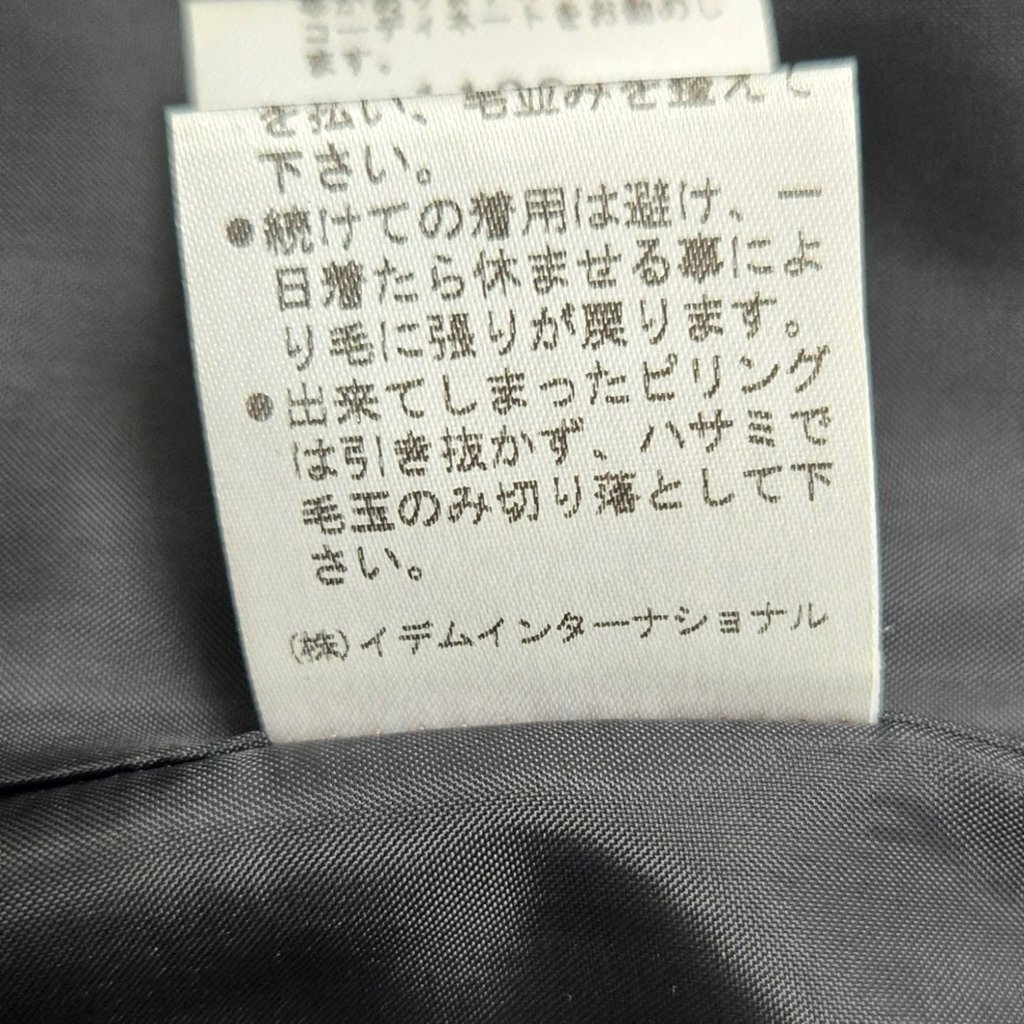 コーディネートをお勧めし
ます。
を払い、毛並みを整えて
下さい。
●続けての着用は避け、一
日着たら休ませる事によ
り毛に張りが戻ります。
●出来てしまったピリング
は引き抜かず、ハサミで
毛玉のみ切り落として下
さい。
(株)イデムインターナショナル